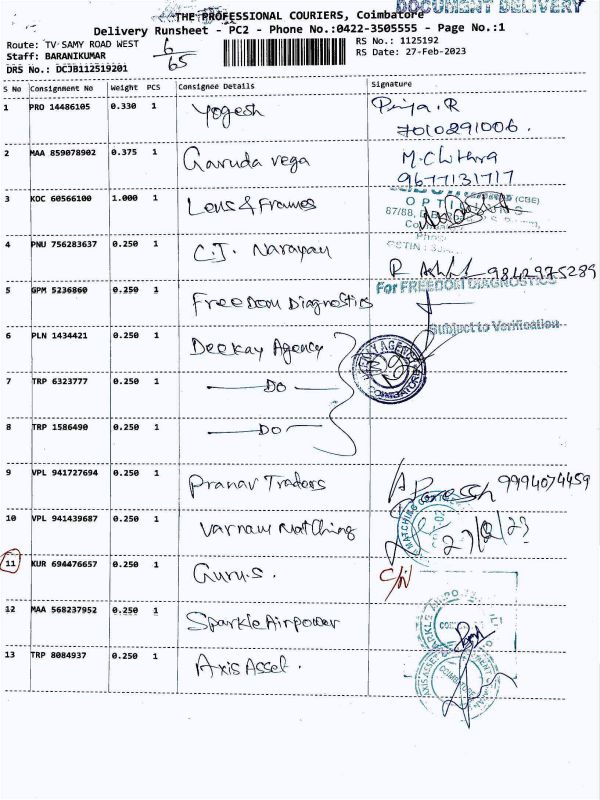 DOCUMENT DELIVERY
THE PROFESSIONAL COURIERS, Coimbatore
Delivery Runsheet - PC2 - Phone No.:0422-3505555 - Page No.:1
Route: TV SAMY ROAD WEST
Staff: BARANIKUMAR
DRS No.: DCJB112519201
6
65
RS No.: 1125192
RS Date: 27-Feb-2023
S No Consignment No Weight PCS Consignee Details Signature
1 PRO 14486105 0.330 1 Yogesh Priya.R
7010291006.
2 MAA 859078902 0.375 1 Garuda vega M.Chithra
9677131717
3 KOC 60566100 1.000 1 Lens & Frames
(CBE)
OPTI
87/88, D.B.
4 PNU 756283637 0.250 1 C.J. Narayan
GSTIN : 33
R 9842975289
5 GPM 5236860 0.250 1 Freedom Diagnostics For FREEDOM DIAGNOSTICS
Subject to Verification
6 PLN 1434421 0.250 1 Deekay Agency
AGENCY
COIMBATORE
7 TRP 6323777 0.250 1 — DO —
8 TRP 1586490 0.250 1 — DO —
9 VPL 941727694 0.250 1 Pranav Traders 9994074459
10 VPL 941439687 0.250 1 Varnam Matching
MATCHING
27/2/23
11 KUR 694476657 0.250 1 Guru.S.
12 MAA 568237952 0.250 1 Sparkle Airpower
SPARKLE AIRPO
13 TRP 8084937 0.250 1 Axis Asset.
AXIS ASSET